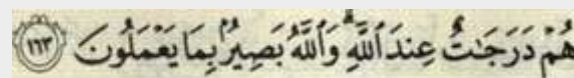 هُمْ دَرَجَٰتٌ عِندَ ٱللَّهِۗ وَٱللَّهُ بَصِيرٌۢ بِمَا يَعْمَلُونَ ١٦٣